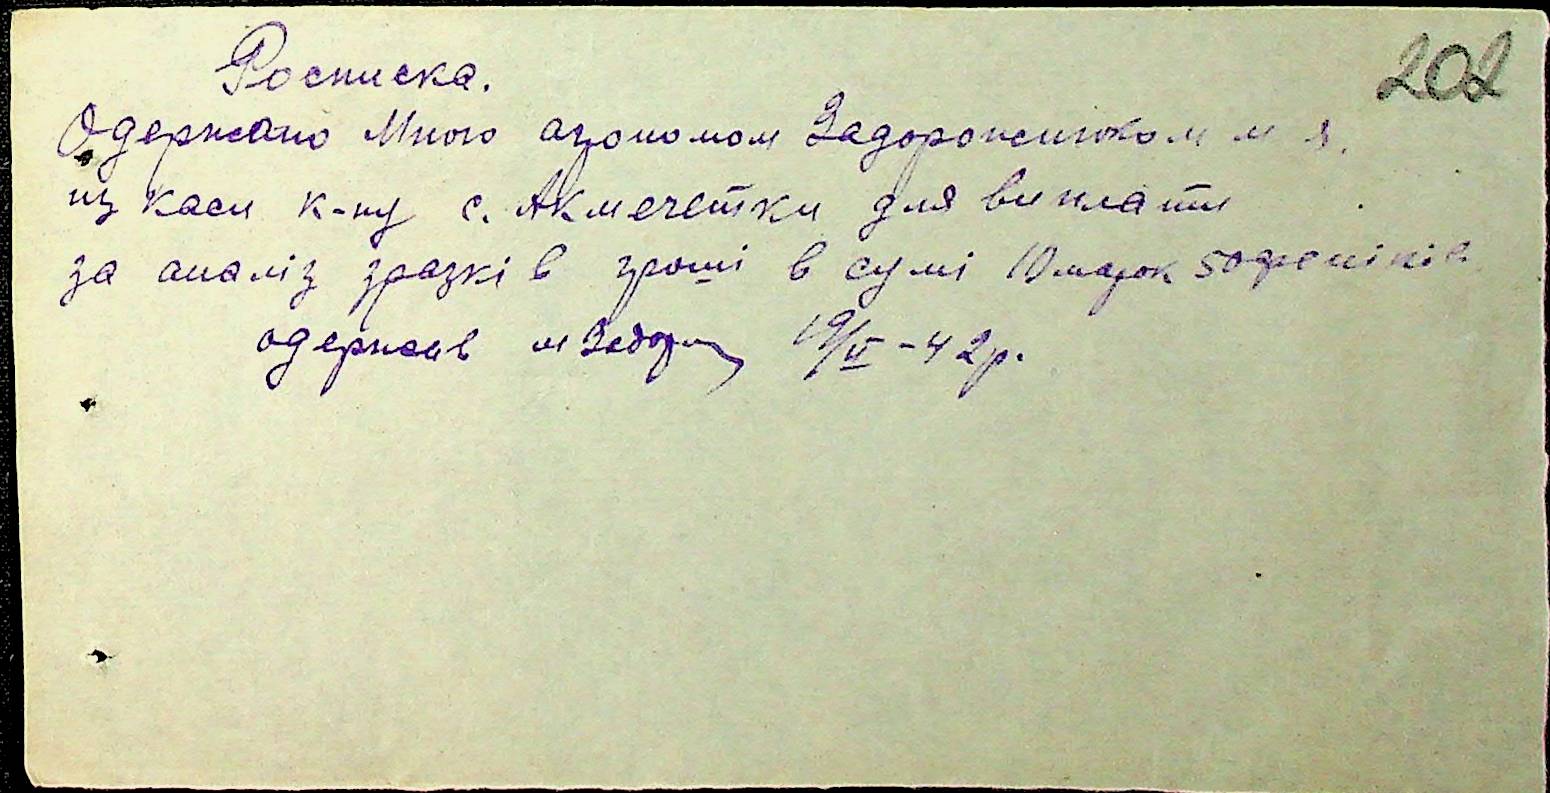 202
Росписка.
Одержано Мною агрономом Задорожнюком М Я.
из каси к-пу с. Акмечетки для виплати
за аналіз зразків гроші в сумі 10 марок 50 феніків
одержав М Задор 19/II - 42 р.